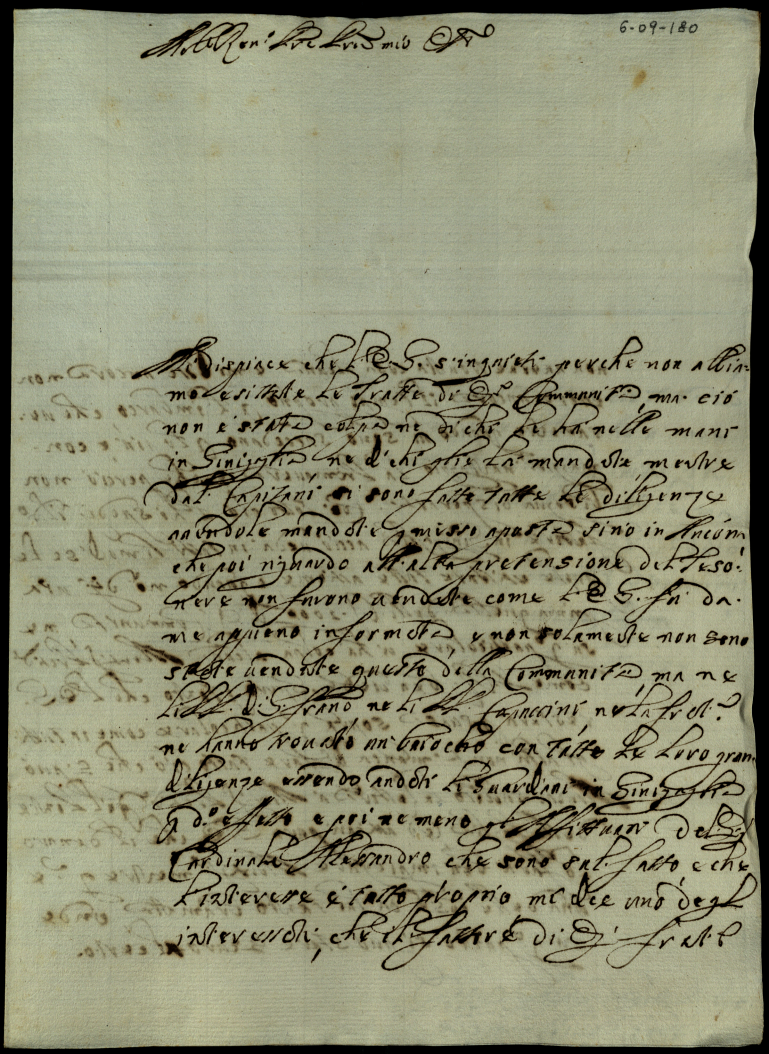 6-09-180
Molto Rev.
Mi dispiace che V. S. s'inquieti perche non abbia-
mo esitate le tratte di Communità, ma ciò
non è stata colpa ne di chi le ha nelle mani
in Sinigaglia ne di chi glie la mandate mentre
dal Capitani si sono fatte tutte le diligenze
avendole mandate messo aposta sino in Ancona
che poi riguardo all'altra pretensione del Teso-
riere non furono vendute come V. S. fu da
me appieno informata e non solamente non sono
state vendute queste della Communità, ma ne
li di S. Fran. ne li Capuccini ne la
ne hanno trovato un baiocho con tutte le loro gran
diligenze essendo andati li Guardiani in Sinigaglia
d. effetto e poi ne meno gl'Affittuari del
Cardinale Alessandro che sono sul fatto, e che
l'interesse è tutto proprio mi dice uno degl
interessati, che di di